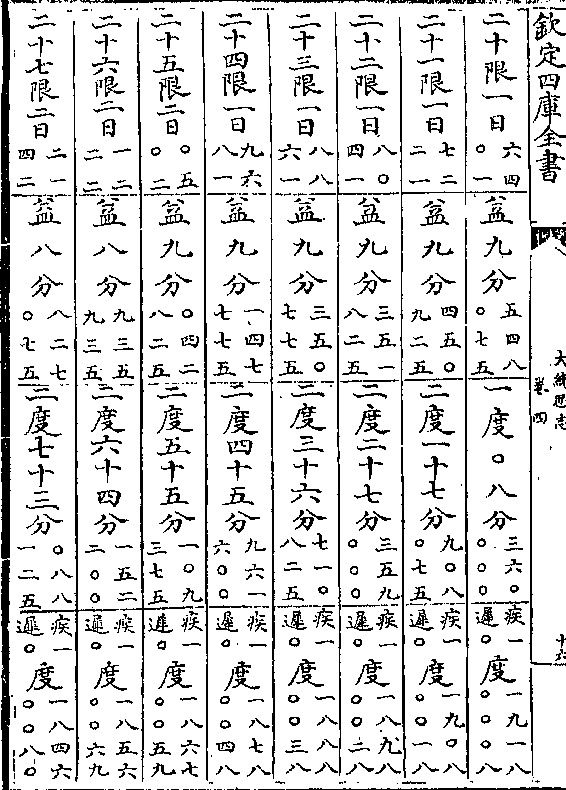 欽定四庫全書
大統歷志
卷四
十六
二十限一日 六四 〇一 益九分 五四八 〇七五 一度〇八分 三六〇 〇〇〇 疾一 遲〇 度 一九一八 〇〇〇八
二十一限一日 七二 二一 益九分 四五〇 九二五 二度一十七分 九〇八 〇七五 疾一 遲〇 度 一九〇八 〇〇一八
二十二限一日 八〇 四一 益九分 三五一 八二五 二度二十七分 三五九 〇〇〇 疾一 遲〇 度 一八九八 〇〇二八
二十三限一日 八八 六一 益九分 三五〇 七七五 二度三十六分 七一〇 八二五 疾一 遲〇 度 一八八八 〇〇三八
二十四限一日 九六 八一 益九分 一四七 七七五 二度四十五分 九六一 六〇〇 疾一 遲〇 度 一八七八 〇〇四八
二十五限二日 〇五 〇二 益九分 〇四二 八二五 二度五十五分 一〇九 三七五 疾一 遲〇 度 一八六七 〇〇五九
二十六限二日 一二 二二 益八分 九三五 九三五 二度六十四分 一五二 二〇〇 疾一 遲〇 度 一八五六 〇〇六九
二十七限二日 二一 四二 益八分 八二七 〇七五 二度七十三分 〇八八 一二五 疾一 遲〇 度 一八四六 〇〇八〇